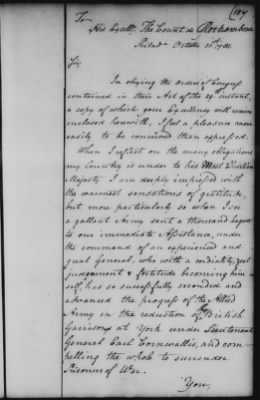 (184
To
His Excelly. The Count de Rochambeau
Philada. October 31st. 1781.
Sir,
In obeying the Orders of Congress
contained in their Act of the 29th. instant,
a copy of which your Excellency will receive
enclosed herewith, I feel a pleasure more
easily to be conceived than expressed.
When I reflect on the many obligations
my Country is under to his Most Christian
Majesty I am deeply impressed with
the warmest sensations of gratitude,
but more particularly so when I see
a gallant Army sent a thousand leagues
to our immediate Assistance, under
the command of an experienced and
great General, who with a cordiality, zeal
judgement & fortitude becoming him
self, has so successfully seconded and
advanced the progress of the Allied
Army in the reduction of the British
Garrisons at York under Lieutenant
General Earl Cornwallis, and com-
pelling the whole to surrender
Prisoners of War.
Your,